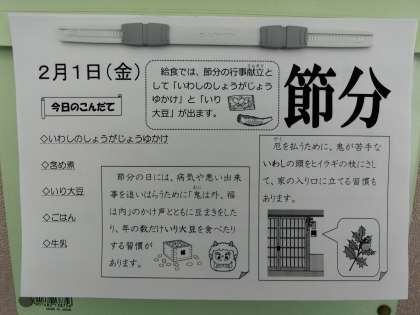 2月1日(金)
給食では、節分の行事献立と
して「いわしのしょうがじょう
ゆかけ」と「いり
大豆」が出ます。
節分
今日のこんだて
◇いわしのしょうがじょうゆかけ
◇含め煮
◇いり大豆
◇ごはん
◇牛乳
節分の日には、病気や悪い出来
事を追いはらうために「鬼は外、福
は内」のかけ声とともに豆まきをした
り、年の数だけいり大豆を食べたり
する習慣が
あります。
厄を払うために、鬼が苦手な
いわしの頭をヒイラギの枝にさし
て、家の入り口に立てる習慣も
あります。